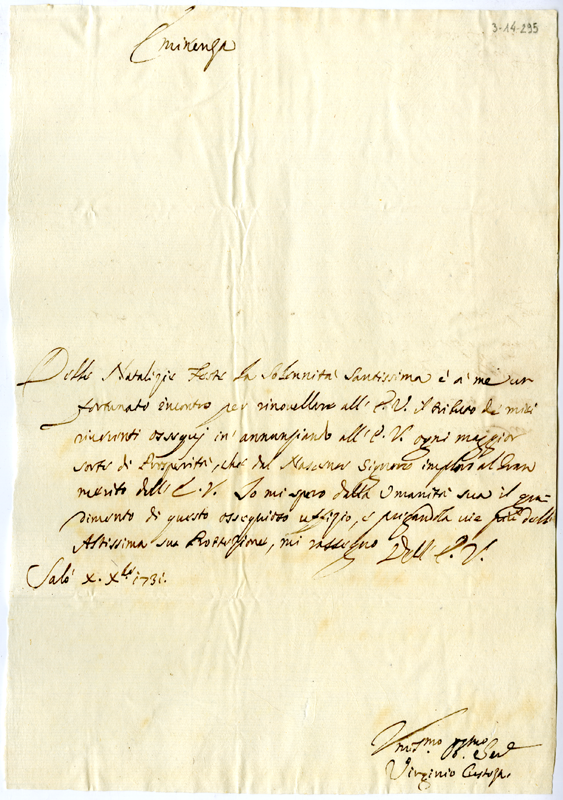 3-14-295
Eminenza
Delle Natalizie Feste la Solennità Santissima è à me un
fortunato incontro per rinovellare all' E. V. il tributo de miei
riverenti ossequj in' annunziando all' E. V. ogni maggior
sorte di Prosperità, che dal Nascente Signore imploro al Gran
merito dell' E. V. Io mi spero dalla Umanità sua il gra-
dimento di questo ossequioso uffizio, e pregandola vie più della
Altissima sua Protezione, mi rassegno Dell' E. V.
Salò X. Xbre 1731.
Umilmo
Virginio